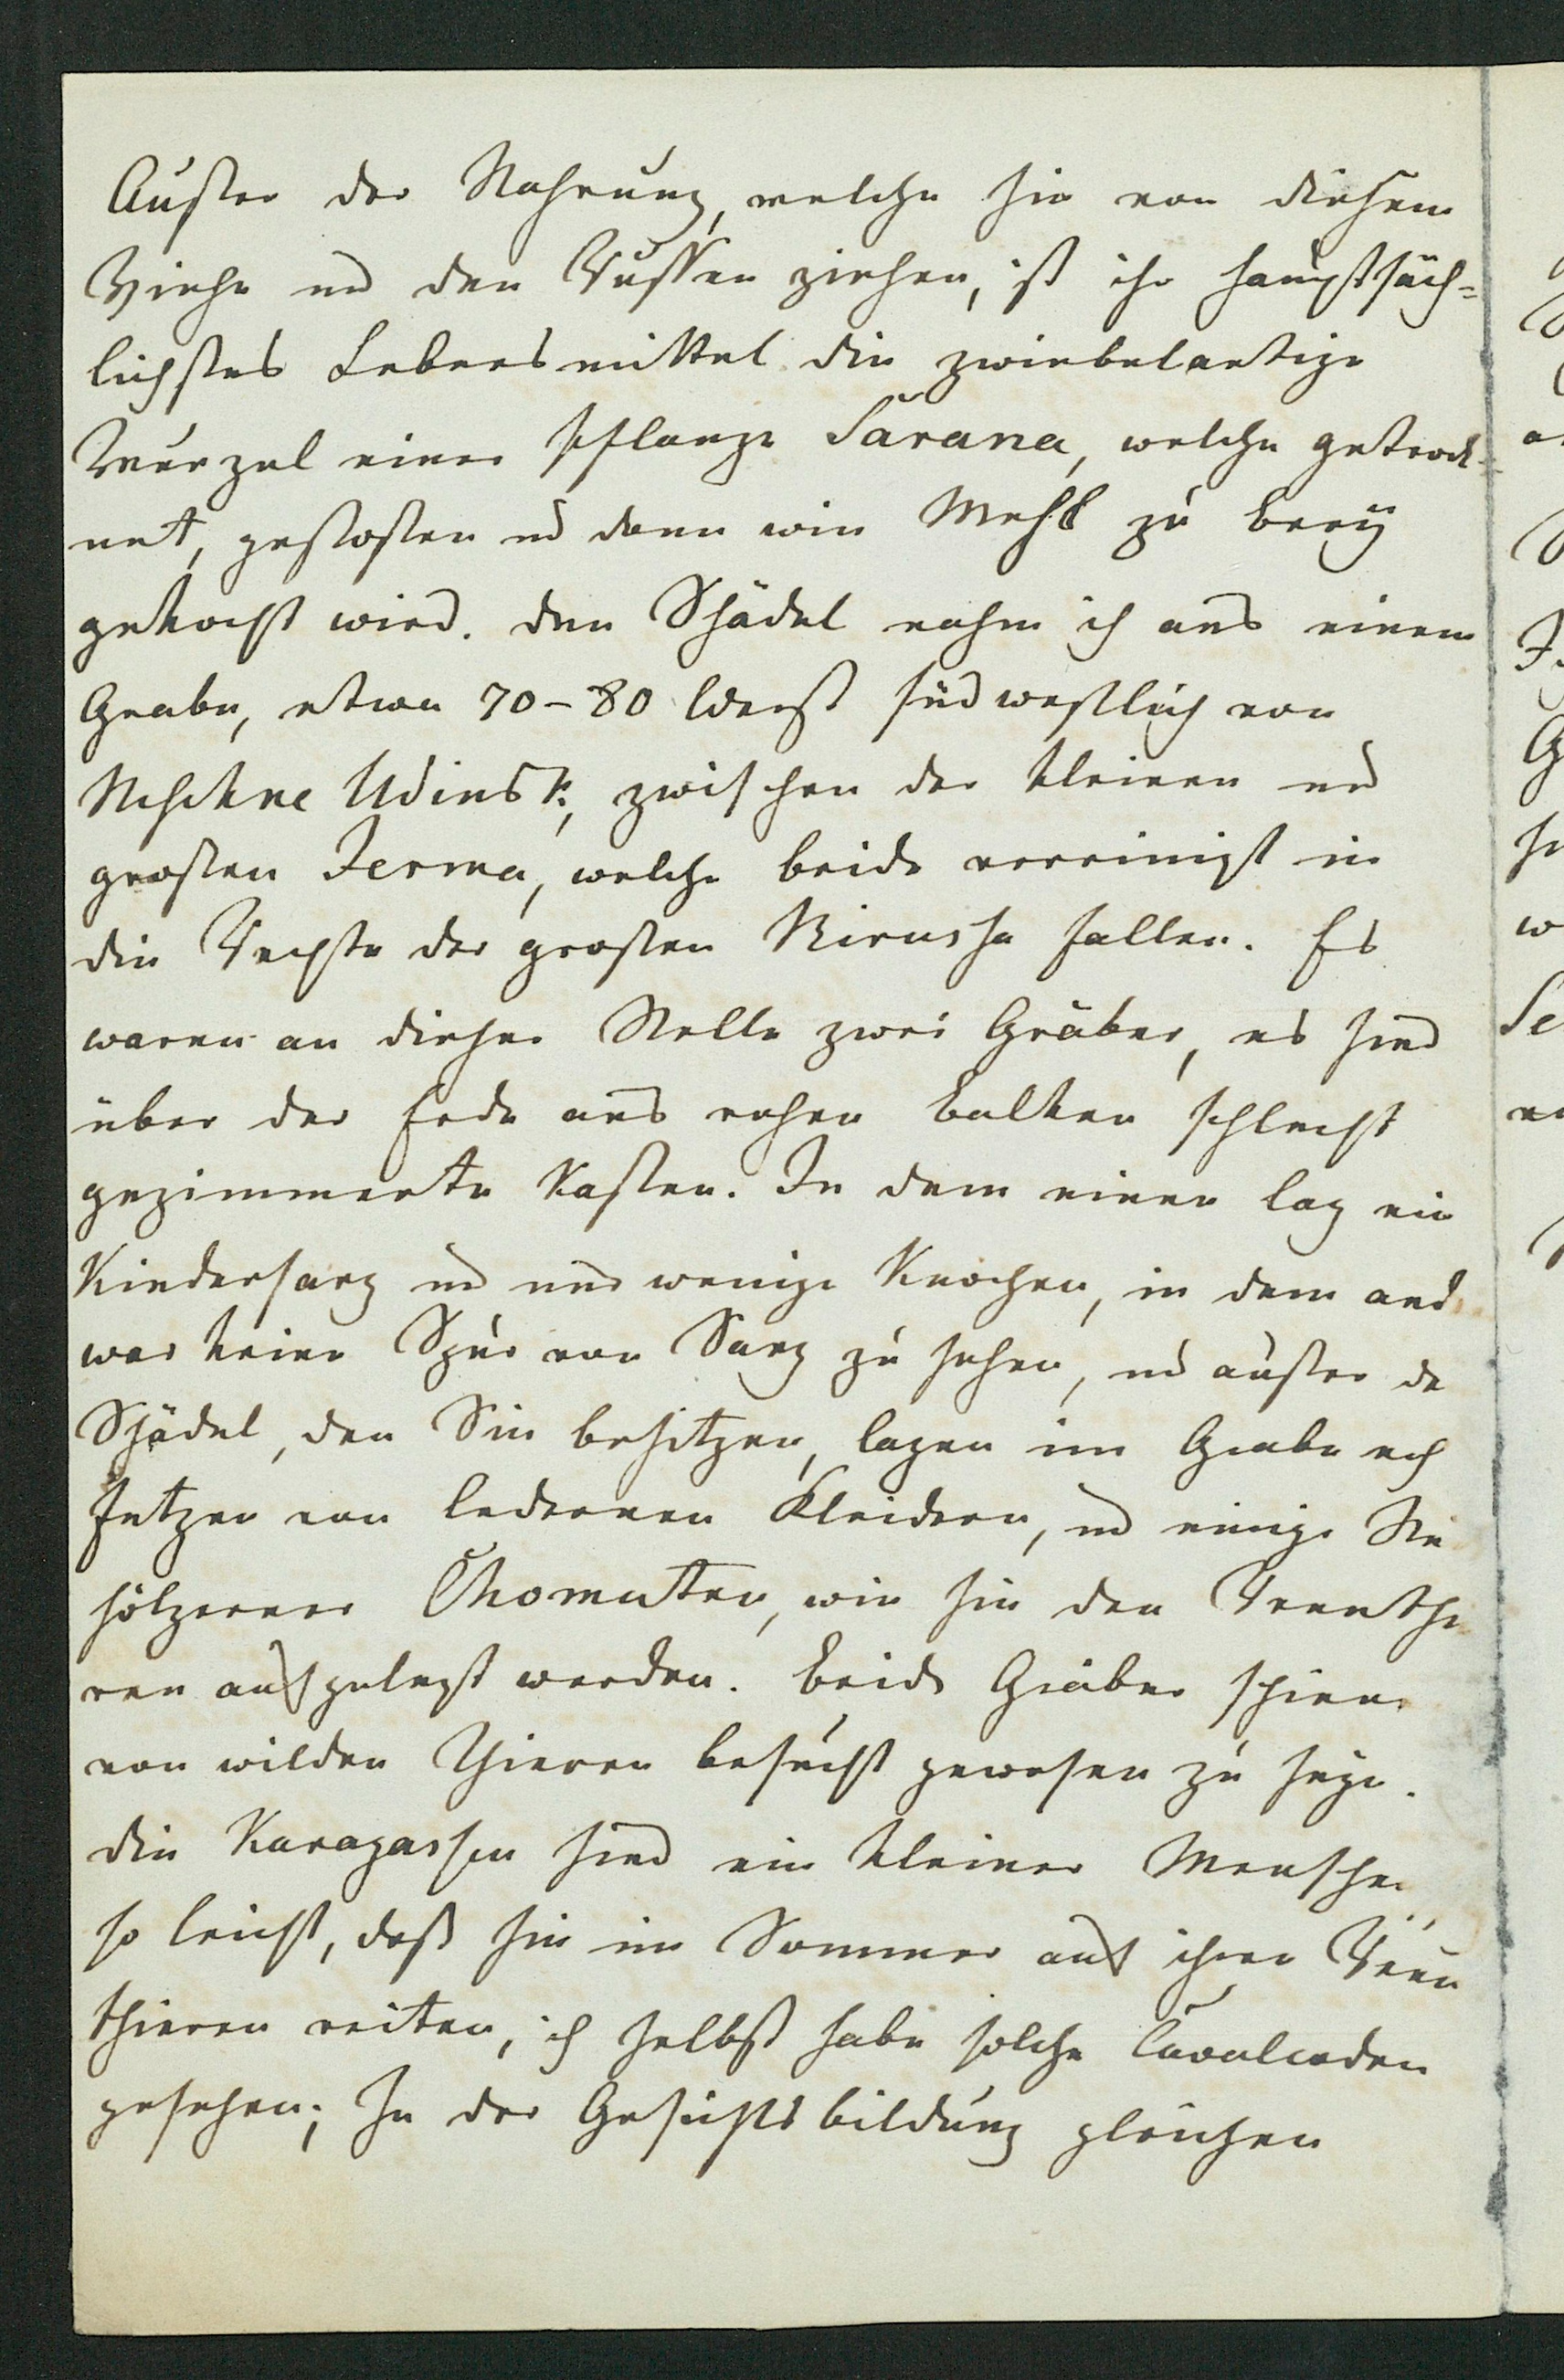 Außer der Nahrung, welche sie von diesem
Viehe und den Nüssen ziehen, ist ihr hauptsäch=
lichstes Lebensmittel die zwiebelartige
Wurzel einer Pflanze Sarana, welche getrock-
net, gestoßen und dann wie Mehl zu Brey
gekocht wird. Den Schädel nahm ich aus einem
Grabe, etwa 70-80 Werst südwestlich von
Nischne Udinsk, zwischen der kleinen und
großen Jerma, welche beide vereinigt in
die Rechte der großen Birussa fallen. Es
waren an dieser Stelle zwei Gräber, es sind
über der Erde aus rohen Balken schlecht
gezimmerte Kasten. In dem einen lag ein
Kindersarg und nur wenige Knochen, in dem and
war keine Spur von Sarg zu sehen, und außer de
Schädel, den Sie besitzen, lagen im Grabe noch
Fetzen von ledernen Kleidern, und einige
hölzerner Chomuten, wie sie den Rennthi
ren aufgelegt werden. Beide Gräber schienen
von wilden Thieren besucht gewesen zu seyn.
Die Karagassen sind ein kleiner Menschen
so leicht, daß sie im Sommer auf ihren Renn
thieren reiten, ich selbst habe solche Cavalcaden
gesehen; In der Gesichtsbildung gleichen